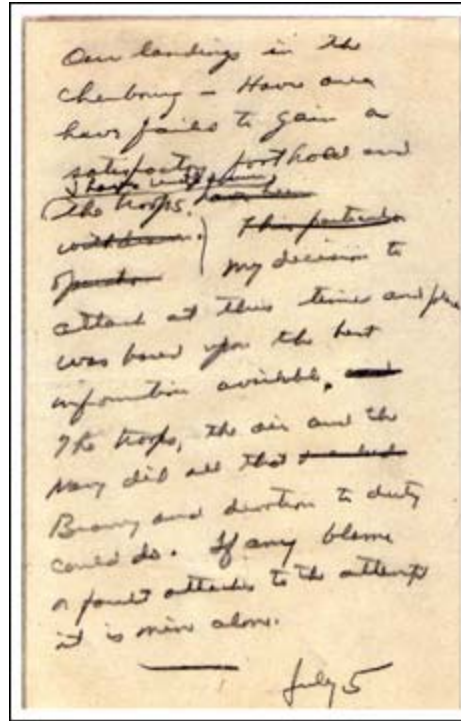 Our landings in the
Cherbourg – Havre area
have failed to gain a
satisfactory foothold and
I have withdrawn
the troops. have been
withdrawn. This particular
operation My decision to
attack at this time and place
was based upon the best
information available, and
The troops, the air and the
Navy did all that
Bravery and devotion to duty
could do. If any blame
or fault attaches to the attempt
it is mine alone.
July 5